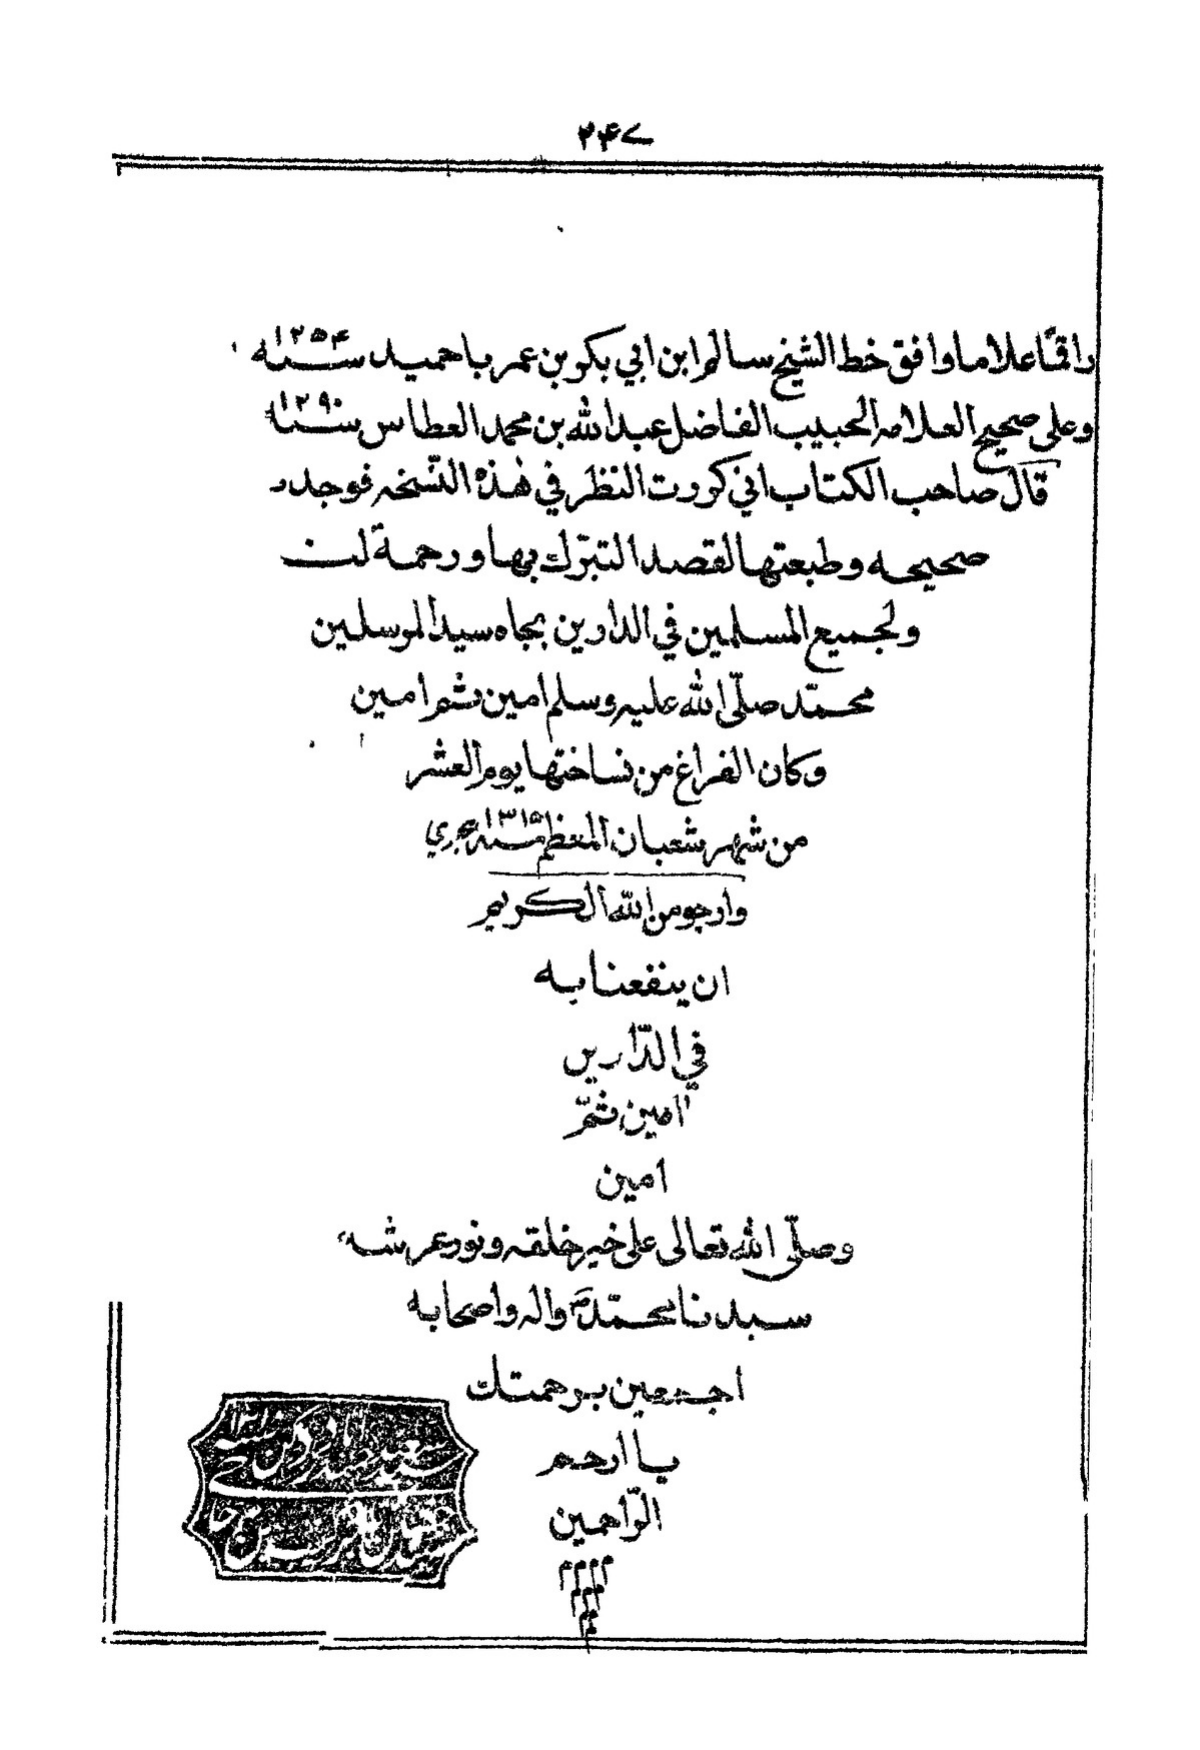 ۲۴۷
راقمًا علاما وافق خط الشيخ سالم ابن ابي بكر بن عمر باحميد سنه ۱۲۵۴
وعلى صحيح العلامه الحبيب الفاضل عبد الله بن محمد العطاس سنه ۱۲۹۰
قال صاحب الكتاب اني كررت النظر في هذه النسّخه فوجدر
صحيحه وطبعتها لقصد التبرّك بها ورحمة لنـ
ولجميع المسلمين في الدارين بجاه سيد المرسلين
محمّد صلّى الله عليه وسلم امين ثم امين
وكان الفراغ من نساختها يوم العشر
من شهر شعبان المعظم سنه ۱۳۱۵ هجري
وارجو من الله الكريم
ان ينفعنا به
في الدّارين
امين ثمّ
امين
وصلّى الله تعالى على خير خلقه ونور عرشه
سيدنا محمّد واله واصحابه
اجمعين برحمتك
يا ارحم
الرّاحمين
م م م م
م م م
م م